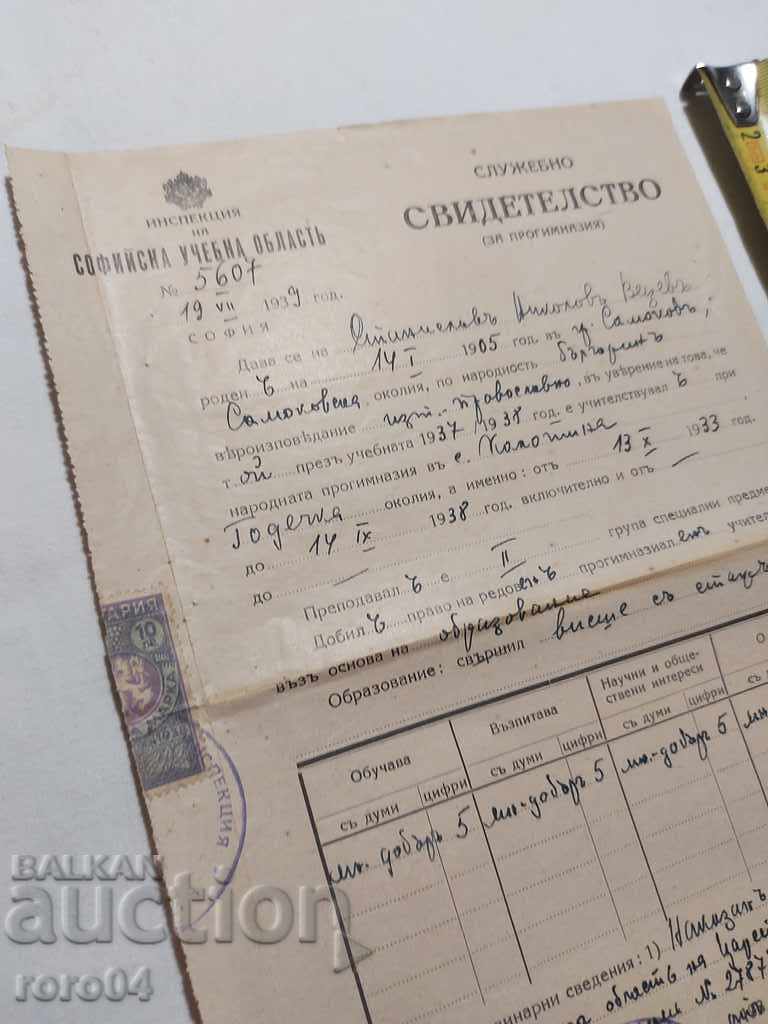 ИНСПЕКЦИЯ
НА
СОФИЙСКА УЧЕБНА ОБЛАСТЬ
№ 5607
19 VII 1939 год.
СОФИЯ
СЛУЖЕБНО
СВИДЕТЕЛСТВО
(ЗА ПРОГИМНАЗИЯ)
Дава се на Станиславъ Николовъ
роденъ на 14 I 1905 год. въ гр. Самоковъ,
Самоковска околия, по народность българинъ
вѣроизповѣдание изт.-православно, въ уверение на това, че
т.ой презъ учебната 1937/1938 год. е учителствувалъ при
народната прогимназия въ с. Калотина
Годечка околия, а именно: отъ 13 X 1933 год.
до 14 IX 1938 год. включително и отъ —
до —
Преподавалъ е II група специални
Добилъ право на редовенъ прогимназиаленъ
възъ основа на образование
Образование: свършил висше съ
Обучава
Възпитава
Научни и обще-
ствени интереси
съ думи цифри съ думи цифри съ думи цифри
мн.-добъръ 5 мн.-добъръ 5 мн.-добъръ 5
сведения: 1) Наказанъ
область на
№
10
BALKAN
auction
roro04
2
3